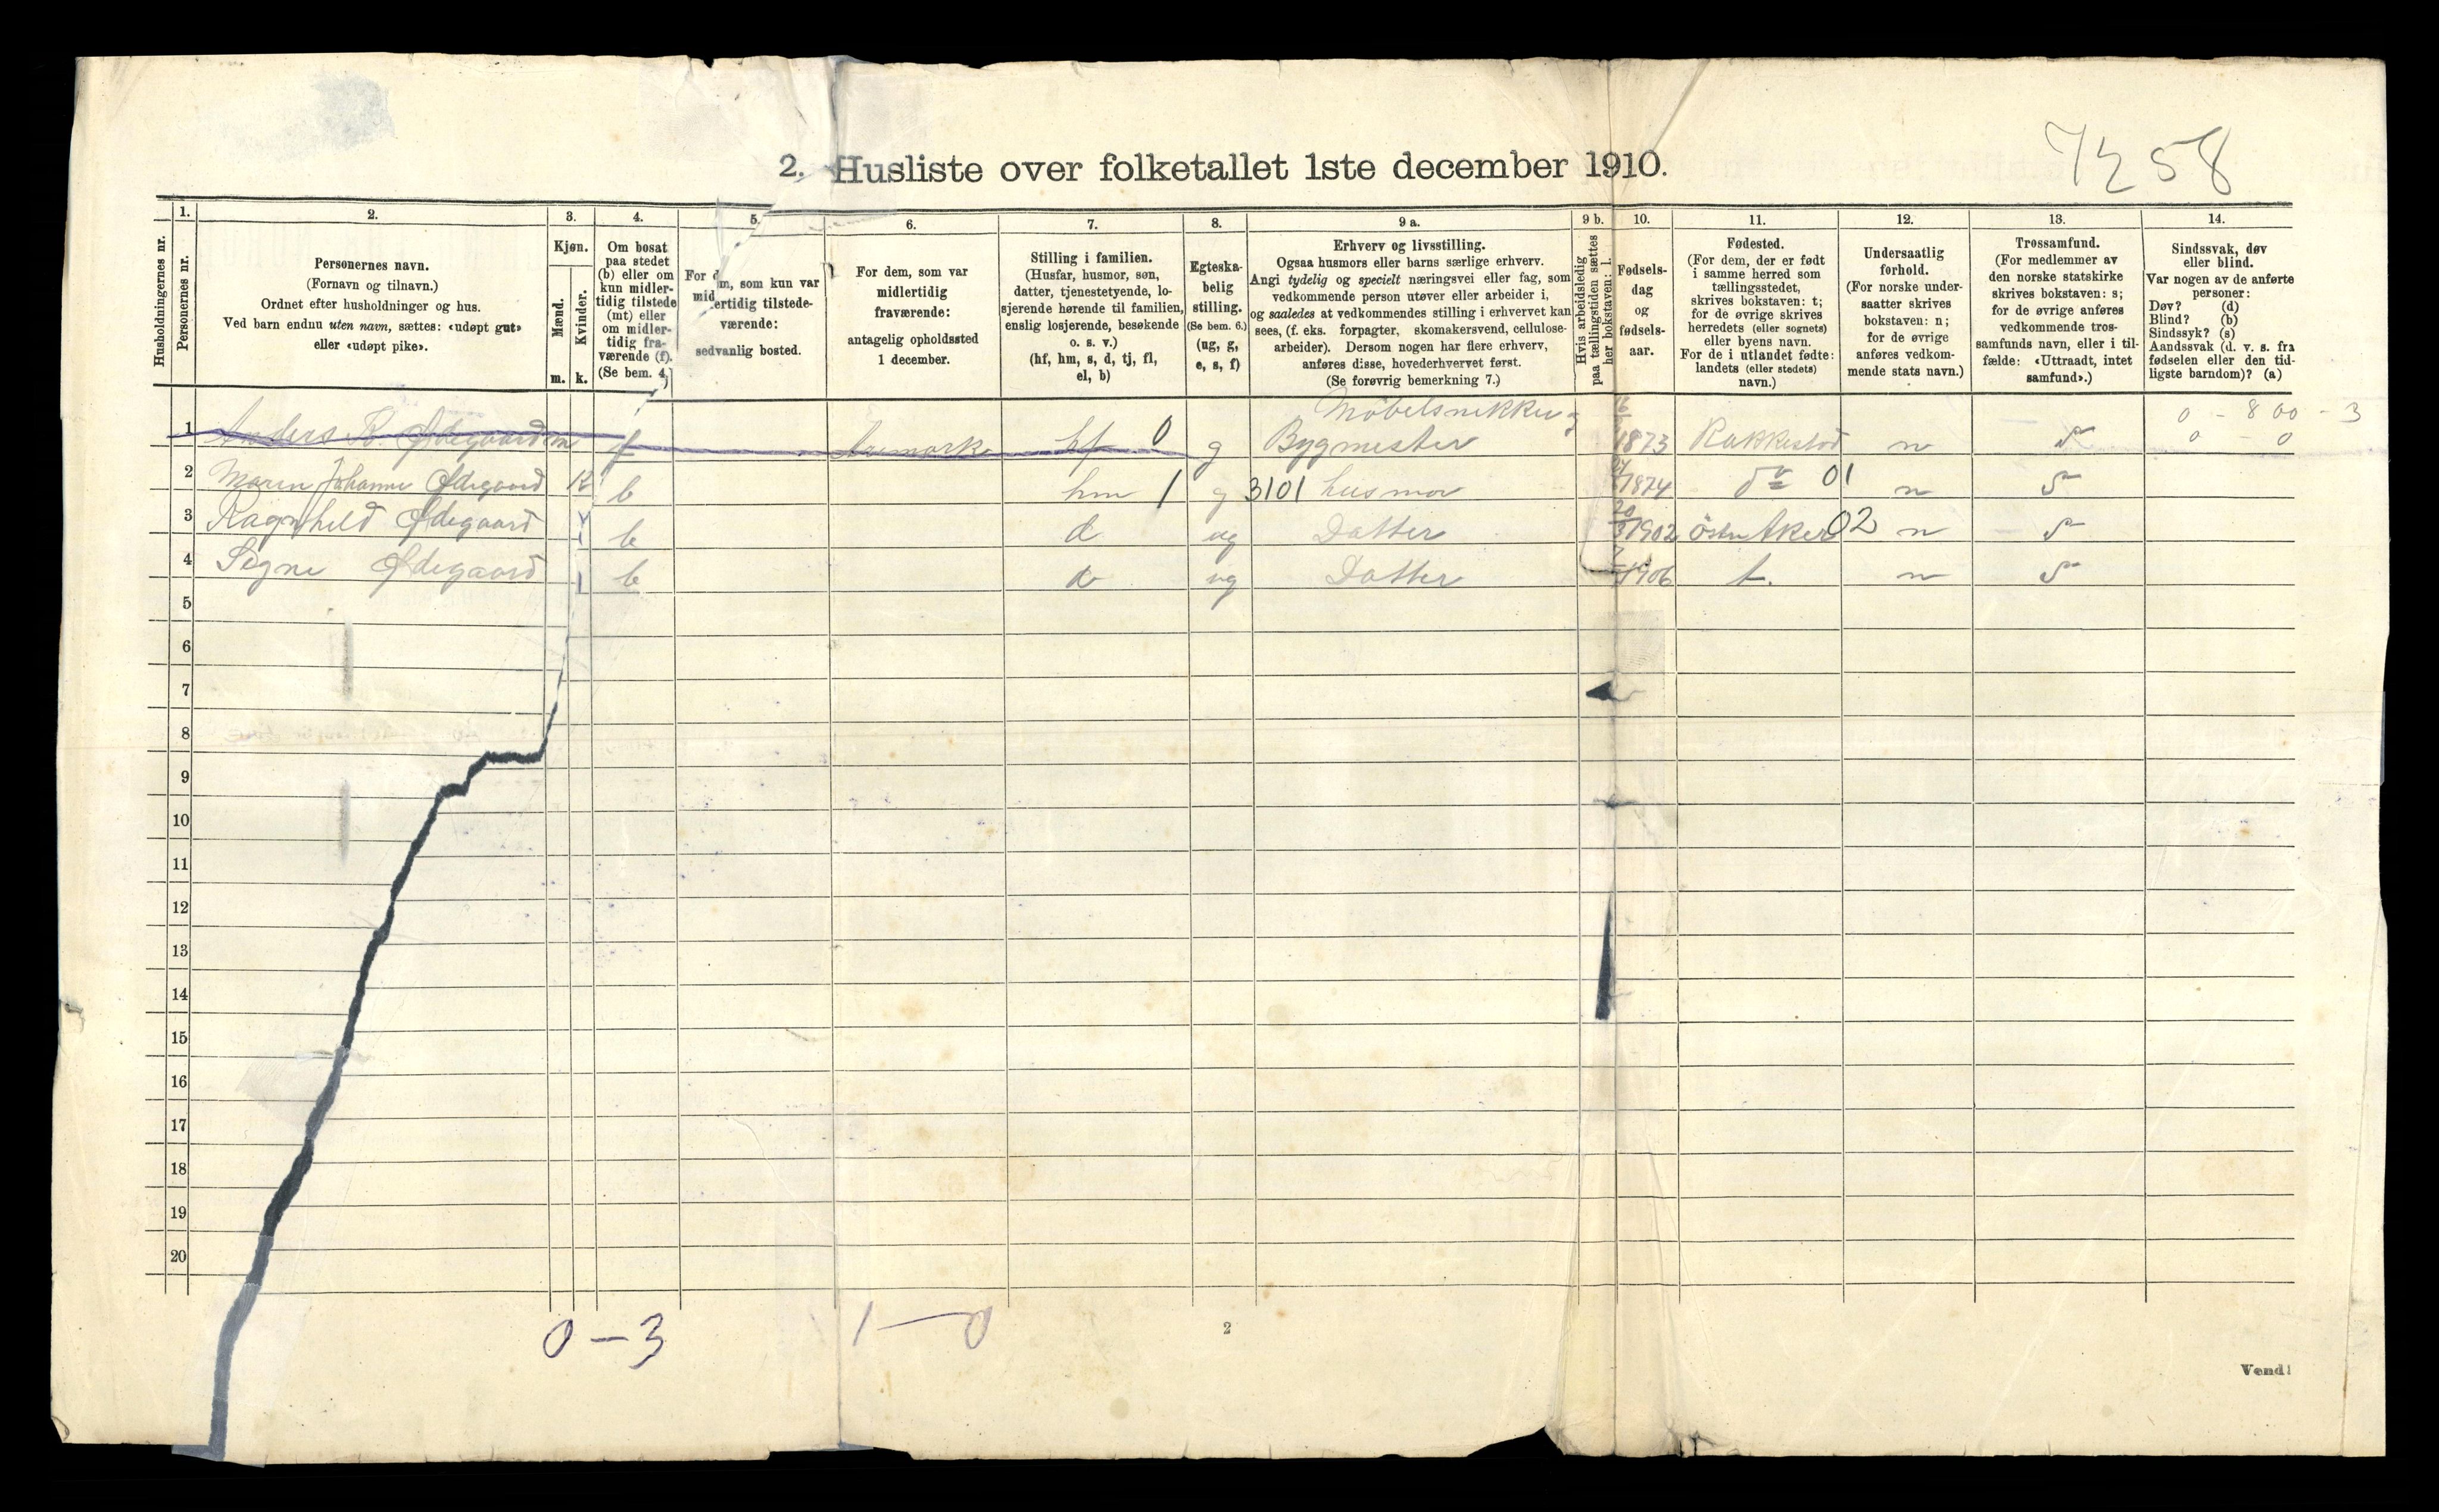 7258
2. Husliste over folketallet 1ste december 1910.
Husholdningernes nr.
1.
Personernes nr.
2.
Personernes navn.
(Fornavn og tilnavn.)
Ordnet efter husholdninger og hus.
Ved barn endnu uten navn, sættes: «udøpt gut»
eller «udøpt pike».
3.
Kjøn.
Mænd.
Kvinder.
m. k.
4.
Om bosat
paa stedet
(b) eller om
kun midler-
tidig tilstede
(mt) eller
om midler-
tidig fra-
værende (f).
(Se bem. 4.)
5.
For dem, som kun var
midlertidig tilstede-
værende:
sedvanlig bosted.
6.
For dem, som var
midlertidig
fraværende:
antagelig opholdssted
1 december.
7.
Stilling i familien.
(Husfar, husmor, søn,
datter, tjenestetyende, lo-
sjerende hørende til familien,
enslig losjerende, besøkende
o. s. v.)
(hf, hm, s, d, tj, fl,
el, b)
8.
Egteska-
belig
stilling.
(Se bem. 6.)
(ug, g,
e, s, f)
9 a.
Erhverv og livsstilling.
Ogsaa husmors eller barns særlige erhverv.
Angi tydelig og specielt næringsvei eller fag, som
vedkommende person utøver eller arbeider i,
og saaledes at vedkommendes stilling i erhvervet kan
sees, (f. eks. forpagter, skomakersvend, cellulose-
arbeider). Dersom nogen har flere erhverv,
anføres disse, hovederhvervet først.
(Se forøvrig bemerkning 7.)
9 b.
Hvis arbeidsledig
paa tællingstiden sættes
her bokstaven: l.
10.
Fødsels-
dag
og
fødsels-
aar.
11.
Fødested.
(For dem, der er født
i samme herred som
tællingsstedet,
skrives bokstaven: t;
for de øvrige skrives
herredets (eller sognets)
eller byens navn.
For de i utlandet fødte:
landets (eller stedets)
navn.)
12.
Undersaatlig
forhold.
(For norske under-
saatter skrives
bokstaven: n;
for de øvrige
anføres vedkom-
mende stats navn.)
13.
Trossamfund.
(For medlemmer av
den norske statskirke
skrives bokstaven: s;
for de øvrige anføres
vedkommende tros-
samfunds navn, eller i til-
fælde: «Uttraadt, intet
samfund».)
14.
Sindssvak, døv
eller blind.
Var nogen av de anførte
personer:
Døv? (d)
Blind? (b)
Sindssyk? (s)
Aandssvak (d. v. s. fra
fødselen eller den tid-
ligste barndom)? (a)
Möbelsnekker og
0 - 800 - 3
1 Anders K. Ødegaard m f hf 0 g Bygmester 1873 Rakkestad n s 0 - 0
2 Maren Johanne Ødegaard k b hm 1 g 3101 husmor 1874 do 01 n s
3 Ragnhild Ødegaard b d ug Datter 1902 Östre Aker 02 n s
4 Signe Ødegaard b d ug Datter 1906 t. n s
5
6
7
8
9
10
11
12
13
14
15
16
17
18
19
20
0 - 3
2
Vend!